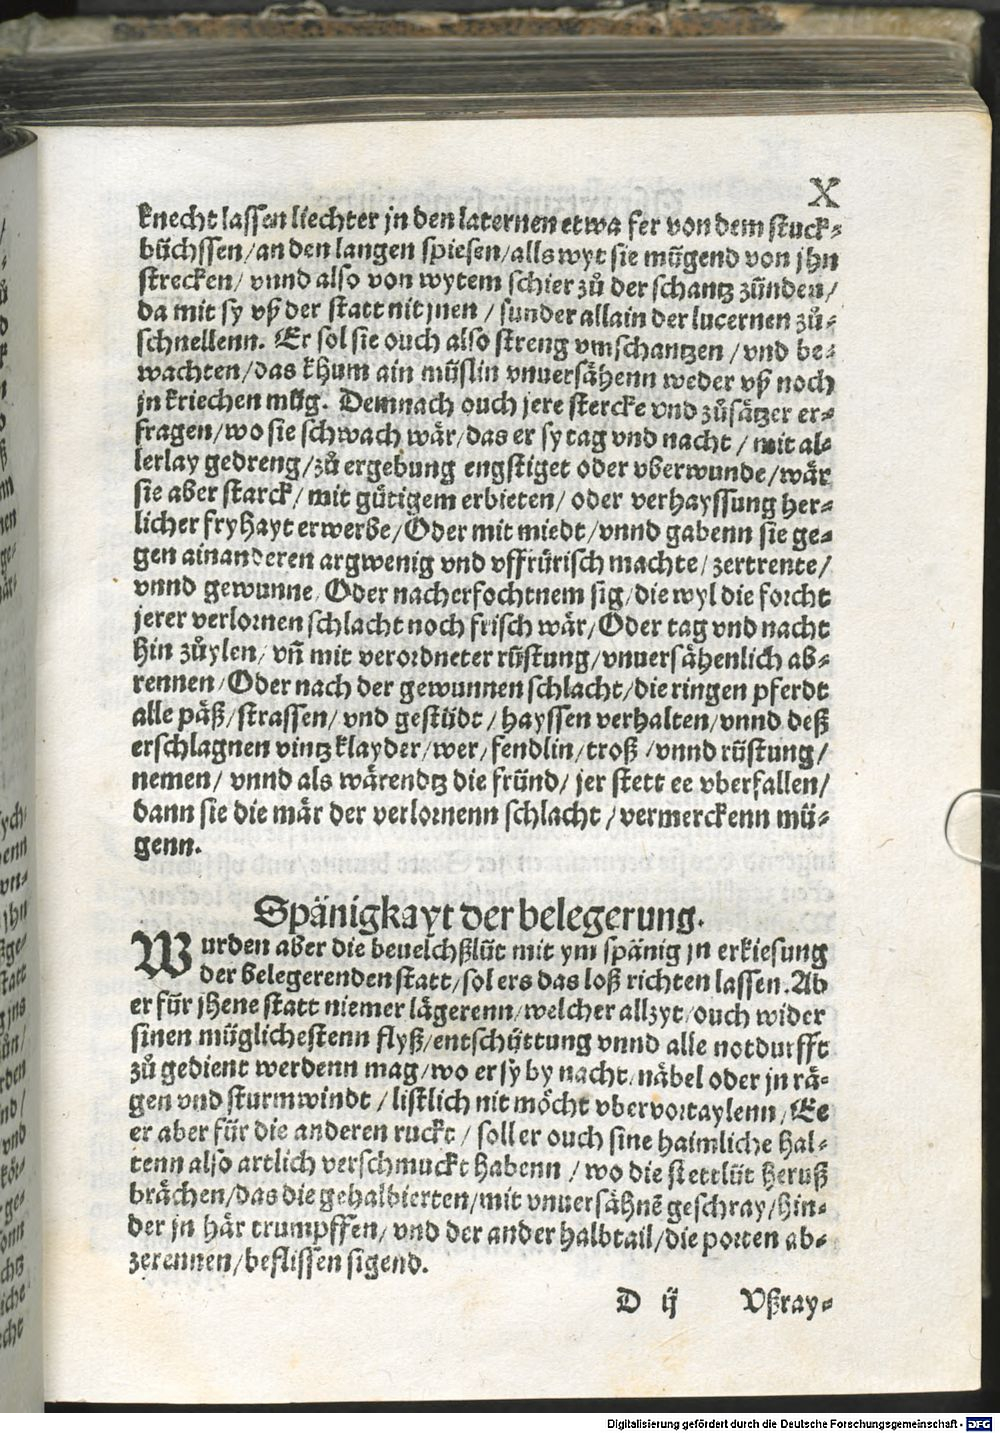 X
knecht lassen liechter jn den laternen etwa fer von dem stuck⸗
büchssen/an den langen spiesen/alls wyt sie mügend von jhn
strecken/ vnnd also von wytem schier zů der schantz zünden/
da mit sy vß der statt nit jnen / sunder allain der lucernen zů⸗
schnellenn. Er sol sie ouch also streng vmschantzen /vnd be⸗
wachten/das khum ain müslin vnuersähenn weder vß noch
jn kriechen müg. Demnach ouch jere stercke vnd zůsätzer er⸗
fragen/wo sie schwach wär/das er sy tag vnd nacht / mit al⸗
lerlay gedreng/zů ergebung engstiget oder vberwunde/wär
sie aber starck/ mit gütigem erbieten/ oder verhayssung her⸗
licher fryhayt erwerbe/Oder mit miedt/vnnd gabenn sie ge⸗
gen ainanderen argwenig vnd vffrürisch machte/ zertrente/
vnnd gewunne/Oder nach erfochtnem sig/die wyl die forcht
jerer verlornen schlacht noch frisch wär/Oder tag vnd nacht
hin zůylen/ vñ mit verordneter rüstung/vnuersähenlich ab⸗
rennen/Oder nach der gewunnen schlacht/die ringen pferdt
alle päß/strassen/ vnd gestüdt /hayssen verhalten/vnnd deß
erschlagnen vintz klayder/wer/fendlin/troß /vnnd rüstung/
nemen/ vnnd als wärendtz die fründ/ jer stett ee vberfallen/
dann sie die mär der verlornenn schlacht /vermerckenn mü⸗
genn.
Spänigkayt der belegerung.
Wurden aber die beuelchßlüt mit ym spänig jn erkiesung
der belegerenden statt/sol ers das loß richten lassen. Ab
er für jhene statt niemer lägerenn/welcher allzyt/ouch wider
sinen müglichestenn flyß/entschüttung vnnd alle notdurfft
zů gedient werdenn mag/wo er sy by nacht/näbel oder jn rä⸗
gen vnd sturmwindt /listlich nit möcht vbervortaylenn/Ee
er aber für die anderen ruckt / soll er ouch sine haimliche hal⸗
tenn also artlich verschmuckt habenn /wo die stettlüt heruß
brächen/das die gehalbierten/mit vnuersähnẽ geschray/hin⸗
der jn här trumpffen/vnd der ander halbtail/die porten ab⸗
zerennen/beflissen sigend.
D ij Vßray⸗
Digitalisierung gefördert durch die Deutsche Forschungsgemeinschaft - DFG